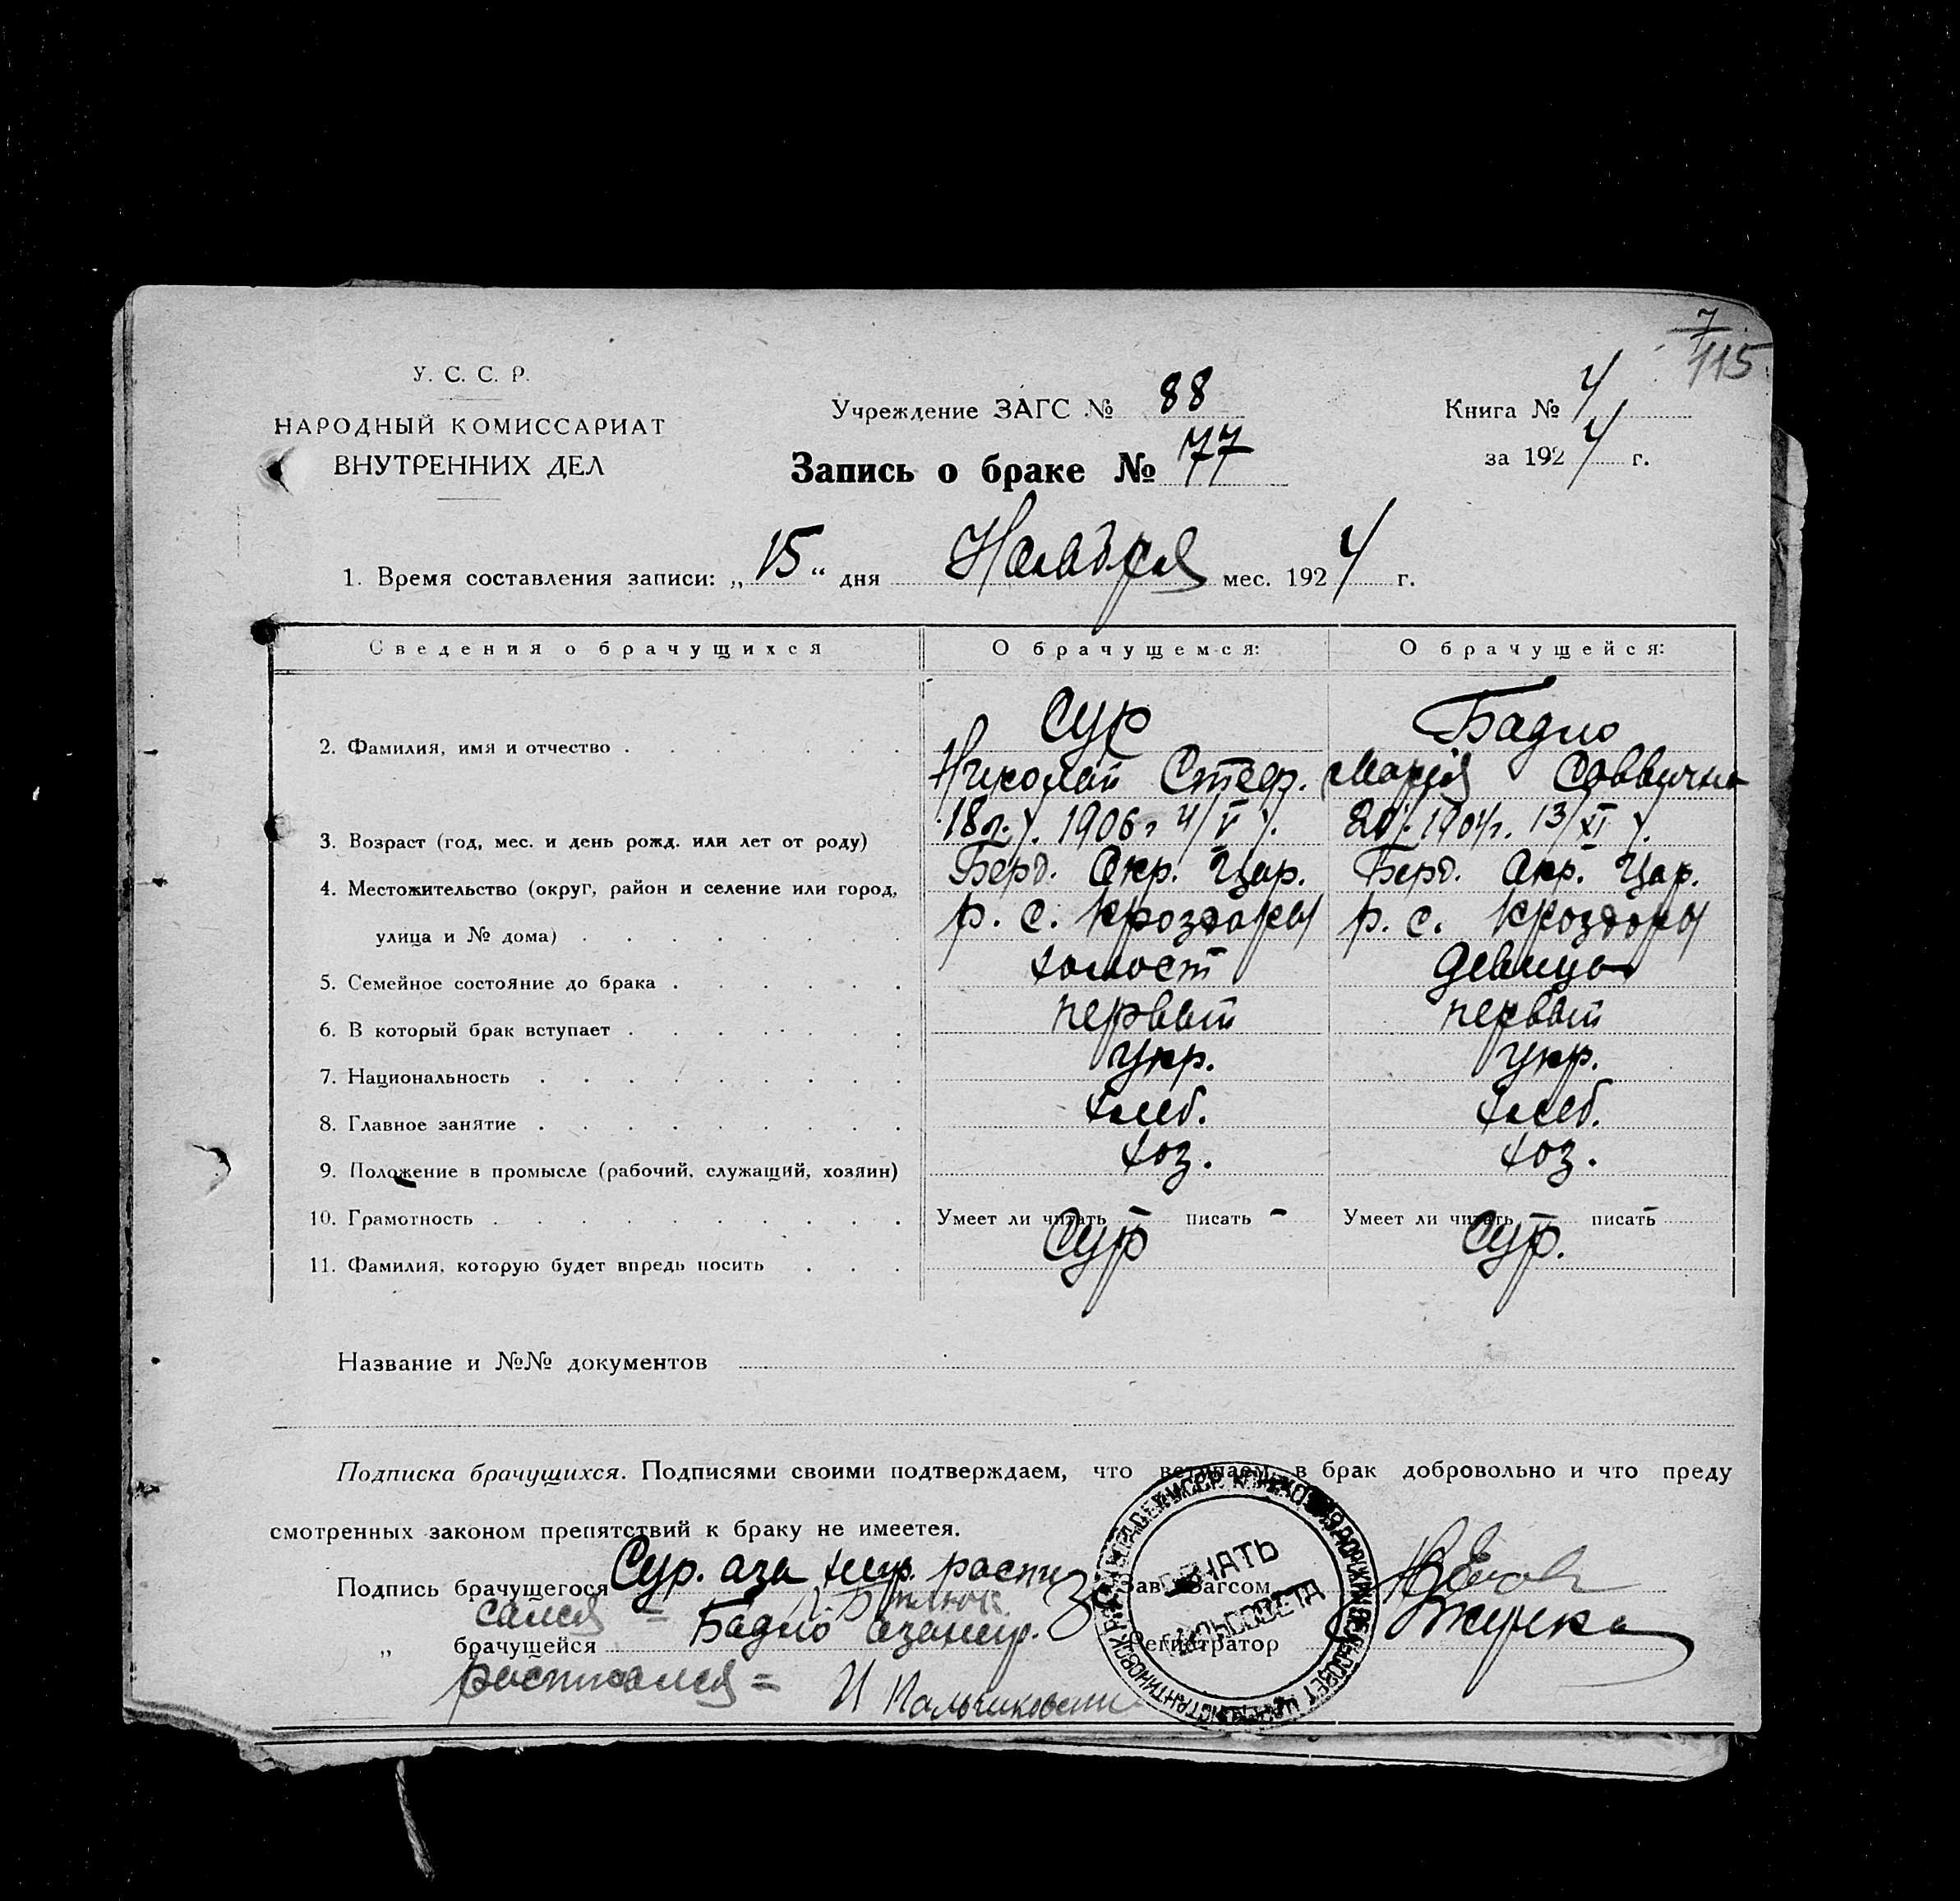 7
115
У. С. С. Р.
НАРОДНЫЙ КОМИССАРИАТ
ВНУТРЕННИХ ДЕЛ
Учреждение ЗАГС № 88
Книга № 4
за 1924 г.
Запись о браке № 77
1. Время составления записи: „15“ дня Ноября мес. 1924 г.
Сведения о брачущихся О брачущемся: О брачущейся:
2. Фамилия, имя и отчество Сур Бадло
Николай Стеф. Мария Саввична
3. Возраст (год, мес. и день рожд. или лет от роду) 18л. 1906 г 4/V 20 1904г. 13/XI
4. Местожительство (округ, район и селение или город, Берд. Окр. Цар. Берд. Окр. Цар.
улица и № дома) р. с. р. с.
5. Семейное состояние до брака холост девица
6. В который брак вступает первый первый
7. Национальность Укр. Укр.
8. Главное занятие хлеб. хлеб.
9. Положение в промысле (рабочий, служащий, хозяин) хоз. хоз.
10. Грамотность Умеет ли читать – писать – Умеет ли читать – писать –
11. Фамилия, которую будет впредь носить Сур Сур.
Название и №№ документов
Подписка брачущихся. Подписями своими подтверждаем, что вступаем в брак добровольно и что преду
смотренных законом препятствий к браку не имеетея.
Подпись брачущегося Сур. аза распи Зав. Загсом
сался =
„ брачущейся Бадло Регистратор
расписался =
ПЕЧАТЬ
СЕЛЬСОВЕТА